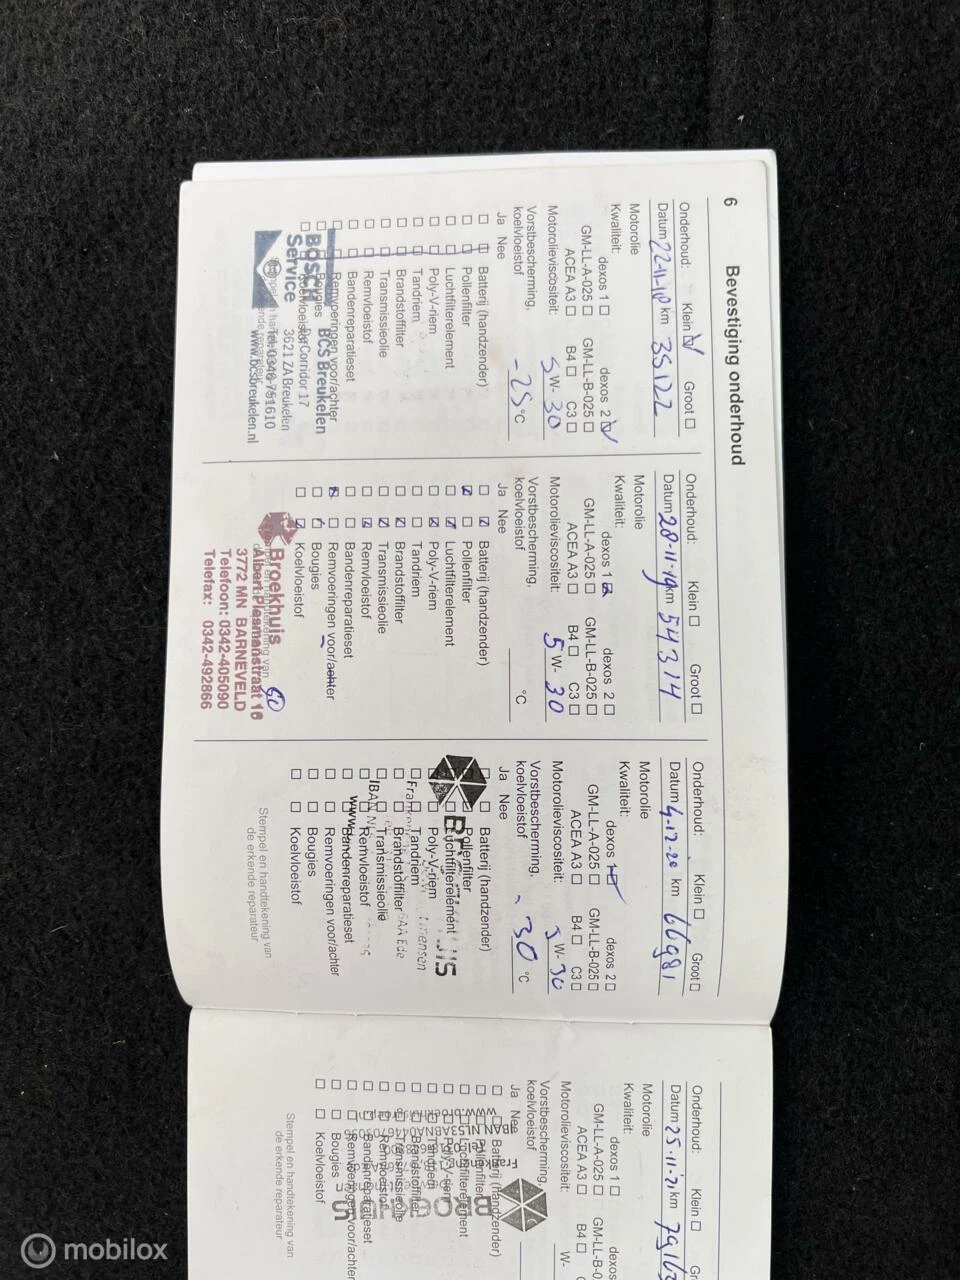 6 Bevestiging onderhoud
Onderhoud: Klein Groot
Datum 22-11-18 km 35122
Motorolie
Kwaliteit: dexos 1 dexos 2
GM-LL-A-025 GM-LL-B-025
ACEA A3 B4 C3
Motorolieviscositeit: 5 W- 30
Vorstbescherming,
koelvloeistof -25 °C
Ja Nee
Batterij (handzender)
Pollenfilter
Luchtfilterelement
Poly-V-riem
Tandriem
Brandstoffilter
Transmissieolie
Remvloeistof
Bandenreparatieset
Remvoeringen voor/achter
Bougies
Koelvloeistof
BOSCH
Service
BCS Breukelen
De Corridor 17
3621 ZA Breukelen
Tel. 0346-751610
www.bcsbreukelen.nl
Onderhoud: Klein Groot
Datum 28-11-19 km 54314
Motorolie
Kwaliteit: dexos 1 dexos 2
GM-LL-A-025 GM-LL-B-025
ACEA A3 B4 C3
Motorolieviscositeit: 5 W- 30
Vorstbescherming,
koelvloeistof °C
Ja Nee
Batterij (handzender)
Pollenfilter
Luchtfilterelement
Poly-V-riem
Tandriem
Brandstoffilter
Transmissieolie
Remvloeistof
Bandenreparatieset
Remvoeringen voor/achter
Bougies
Koelvloeistof
Broekhuis
Albert Plesmanstraat 16
3772 MN BARNEVELD
Telefoon: 0342-405090
Telefax: 0342-492866
Onderhoud: Klein Groot
Datum 4-12-20 km 66981
Motorolie
Kwaliteit: dexos 1 dexos 2
GM-LL-A-025 GM-LL-B-025
ACEA A3 B4 C3
Motorolieviscositeit: 5 W- 30
Vorstbescherming,
koelvloeistof - 30 °C
Ja Nee
Batterij (handzender)
Pollenfilter
Luchtfilterelement
Poly-V-riem
Tandriem
Brandstoffilter
Transmissieolie
Remvloeistof
Bandenreparatieset
Remvoeringen voor/achter
Bougies
Koelvloeistof
Stempel en handtekening van
de erkende reparateur
Onderhoud: Klein
Datum 25-11-'21 km
Motorolie
Kwaliteit: dexos 1
GM-LL-A-025
ACEA A3 B4
Motorolieviscositeit: W-
Vorstbescherming,
koelvloeistof
Ja Nee
Batterij (handzender)
Pollenfilter
Luchtfilterelement
Poly-V-riem
Tandriem
Brandstoffilter
Transmissieolie
Remvloeistof
Bandenreparatieset
Remvoeringen voor/achter
Bougies
Koelvloeistof
Stempel en handtekening van
de erkende reparateur
mobilox